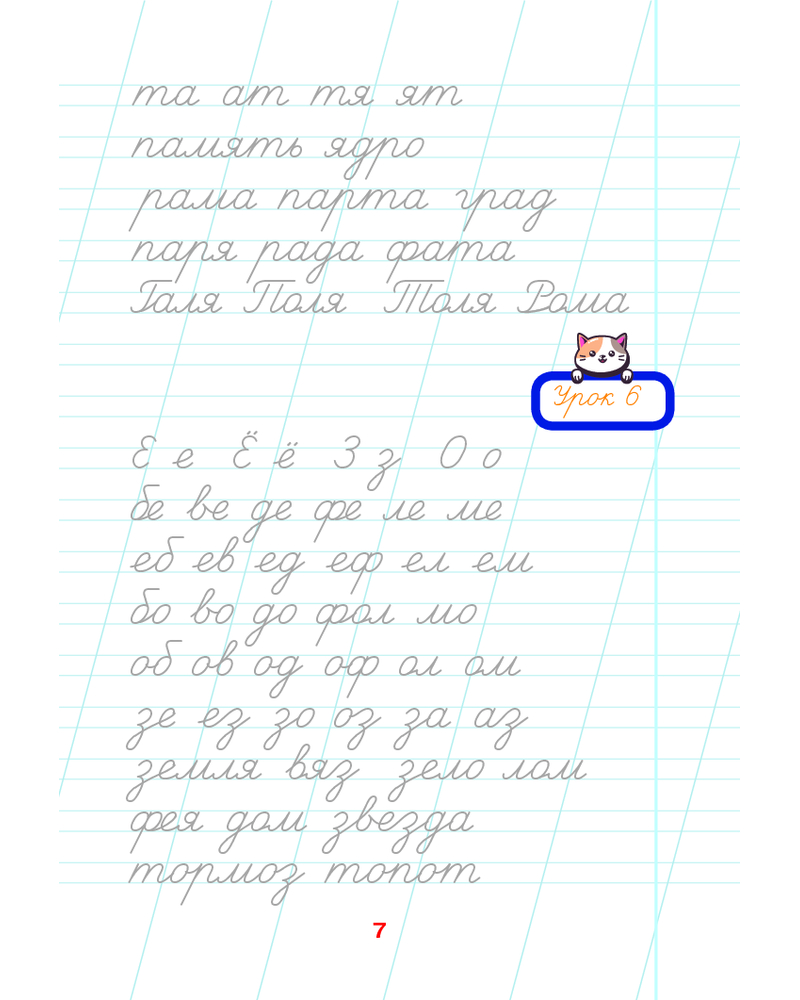 та ат тя ят
память ядро
рама парта град
паря рада фата
Галя Поля Толя Рома
Урок 6
Е е Ё ё З з О о
бе ве де фе ле ме
еб ев ед еф ел ем
бо во до фол мо
об ов од оф ол ом
зе ез зо оз за аз
земля вяз зело лом
фея дом звезда
тормоз топот
7